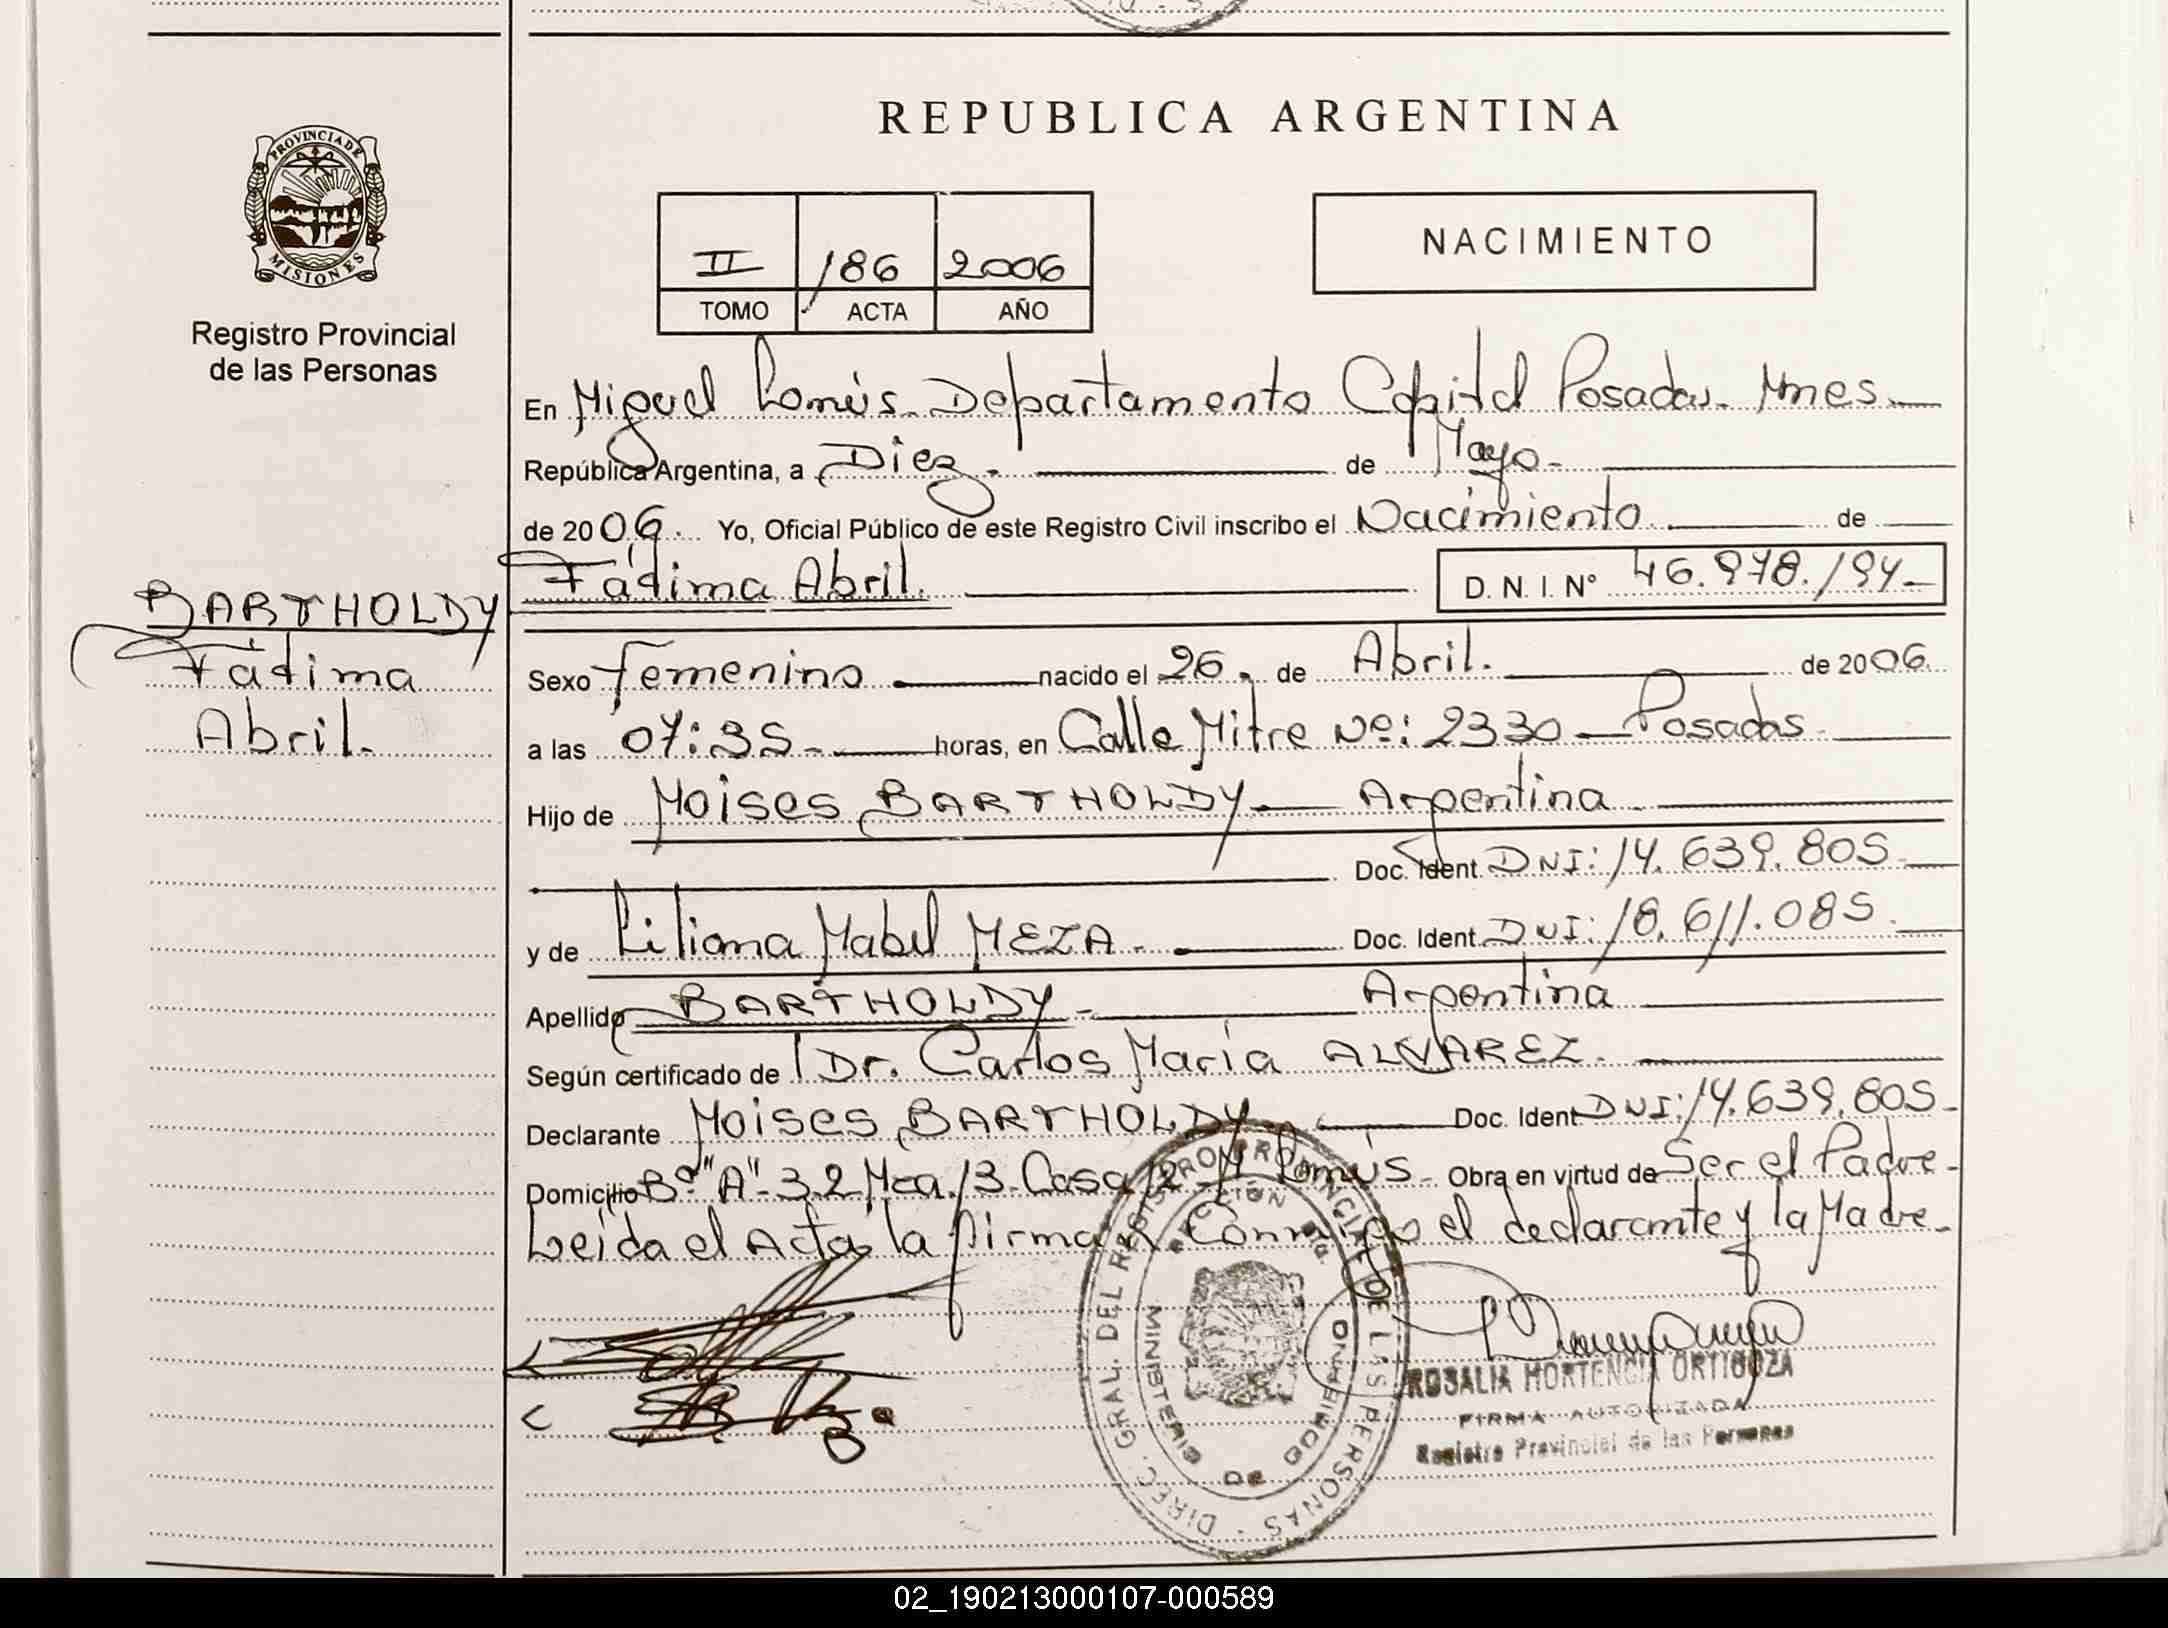 REPUBLICA ARGENTINA
PROVINCIA DE
MISIONES
Registro Provincial
de las Personas
II 186 2006
TOMO ACTA AÑO
NACIMIENTO
En Miguel Lanús. Departamento Capital Posadas. Mnes.
República Argentina, a Diez. de Mayo.
de 2006. Yo, Oficial Público de este Registro Civil inscribo el Nacimiento de
Fátima Abril. D. N. I. N° 46.978.194
BARTHOLDY
Fátima
Abril.
Sexo femenino nacido el 26. de Abril. de 2006.
a las 07:35 horas, en Calle Mitre Nº: 2330 Posadas
Hijo de Moises BARTHOLDY Argentina
Doc. Ident. DNI: 14.639.805
y de Liliana Mabel MEZA. Doc. Ident. DNI: 18.611.085.
Apellido BARTHOLDY Argentina
Según certificado de Dr. Carlos María ALVAREZ.
Declarante Moises BARTHOLDY Doc. Ident. DNI: 14.639.805
Domicilio Bº "A" 32 Mza. 13. Casa 12 M Lanús. Obra en virtud de Ser el Padre
Leída el Acta, la firma Conmigo el declarante y la Madre
DIREC. GRAL. DEL REGISTRO PROVINCIAL DE LAS PERSONAS
MINISTERIO DE GOBIERNO
ROSALIA HORTENCIA ORTIGOZA
FIRMA AUTORIZADA
Registro Provincial de las Personas
02_190213000107-000589